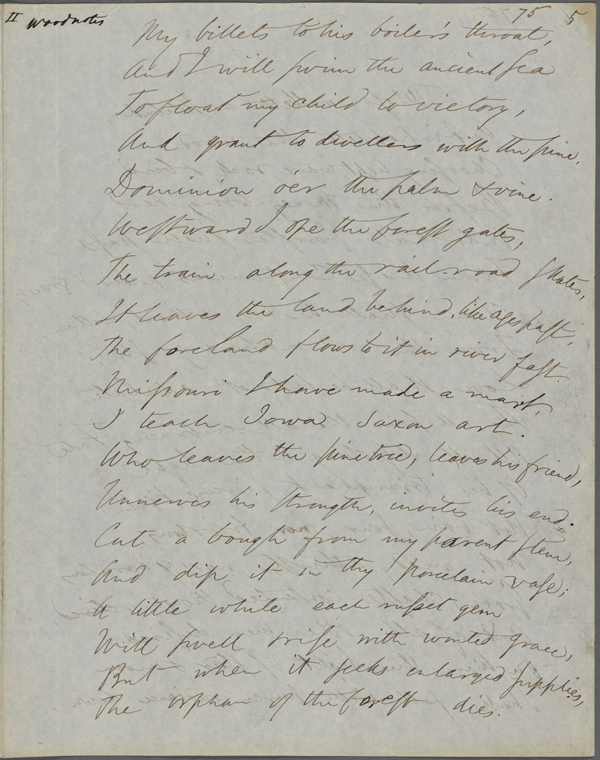 II Woodnotes
75 5
My billets to his boiler's throat,
And I will swim the ancient sea
To float my child to victory,
And grant to dwellers with the pine,
Dominion o'er the palm & vine.
Westward I ope the forest gates,
The train along the rail-road skates,
It leaves the land behind, like ages past,
The foreland flows to it in river fast.
Missouri I have made a mart,
I teach Iowa Saxon art.
Who leaves the pinetree, leaves his friend,
Unnerves his strength, invites his end.
Cut a bough from my parent stem,
And dip it in thy porcelain vase;
A little while each russet gem
Will swell & rise with wonted grace,
But when it seeks enlarged supplies,
The orphan of the forest dies.